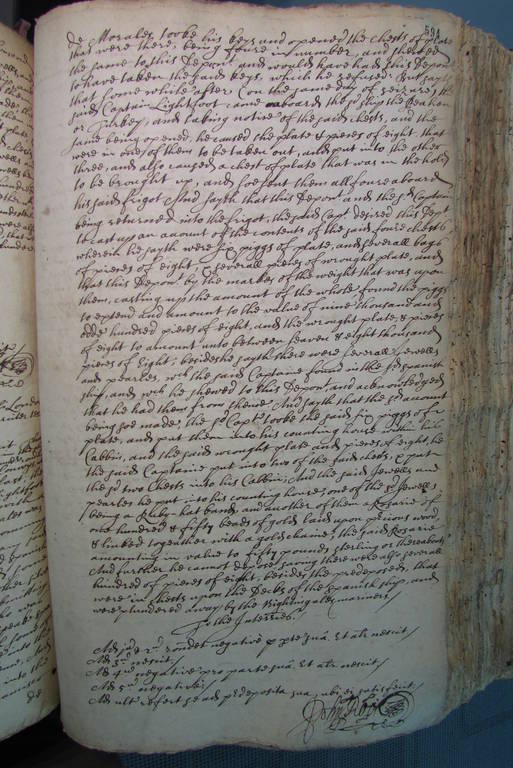 594
de Morales, tooke his keys and opened the chests of plate
that were there, being foure in number, and shewed
the same to this Deponent and would have had this Depon
to have taken the said keys, which he refused. But sayth
that some while after (on the same day of seizure) th
said Captain Lightfoot came on board the sd ship the Beaken
or Juthey, and taking notice of the said chests, and the
same being opened, he caused the plate & pieces of eight that
were in one of them to be taken out, and put into the other
three, and also caused a chest of plate that was in the hold
to be brought up, and soe sent them all foure aboard
his said frigot And sayth that this Depont and the sd Captain
being returned into the frigot, the said Capt. desired this Dept
to cast up an acount of the contents of the said foure chests
wherein he sayth were six piggs of plate, and severall bags
of pieces of eight, & severall pieces of wrought plate, and
that this Depont by the markes of the weight that was upon
them, casting up the amount of the whole found the piggs
to extend and amount to the value of nine thousand and
odde hundred pieces of eight, and the wrought plate, & pieces
of eight to amount unto between seaven & eight thousand
pieces of Eight; besides he sayth there were severall Jewells
and pearles, wch the said Captaine found in the sd Spanish
ship, and wch he shewed to this Depont and acknowledged
that he had them from thence And sayth that the sd account
being soe made, the sd Capt tooke the said six piggs of
plate, and put them into his counting house in his
Cabbin, and the said wrought plate and pieces of eight, he
the said Captaine put into two of the said chests, & put
the sd two Chests into his Cabbin, And the said Jewells and
pearles he put into his counting house, one of the sd Jewells
being a Ruby-hat band, and another of them a Rosarie of
one hundred & fifty beads of gold laid upon pretious wood
& linked together with a gold chaine, the said Rosarie
amounting in value to fifty pounds sterling or thereabouts
And further he cannot depose saving there were also severall
hundred of pieces of eight, besides the predeposed, that
were in chests upon the Decks of the Spanish ship, and
were plundered away by the Nightingalls mariners /
To the Interries. /
Ad jum & 2d. rondet negative pro parte sua. et alr nescit /
Ad 3d. nescit /
Ad 4um negative pro parte sua. et alr nescit /
Ad 5um negative /
Ad ult refert se ad predeposita sua, ubi et satisfecit /
John